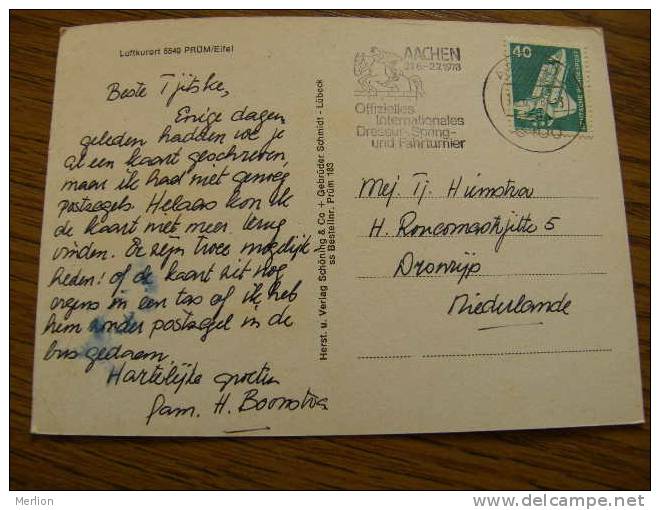 Luftkurort 5540 PRÜM/Eifel
Beste Tjitske,
Enige dagen
geleden hadden we je
al een kaart geschreven,
maar ik had niet genoeg
postzegels. Helaas kon ik
de kaart niet meer terug
vinden. Er zijn twee mogelijk
heden: of de kaart zit nog
ergens in een tas of ik heb
hem zonder postzegel in de
bus gedaan.
Hartelijke groeten
fam. H. Boonstra
Herst. u. Verlag Schöning & Co + Gebrüder Schmidt - Lübeck
ss Bestellnr. Prüm 183
AACHEN
Offizielles
Internationales
Dressur-, Spring-
und Fahrturnier
40
DEUTSCHE BUNDESPOST
Mej. Tj. Hiemstra
H. 5
Dronrijp
Niederlande
Merlion
www.delcampe.net